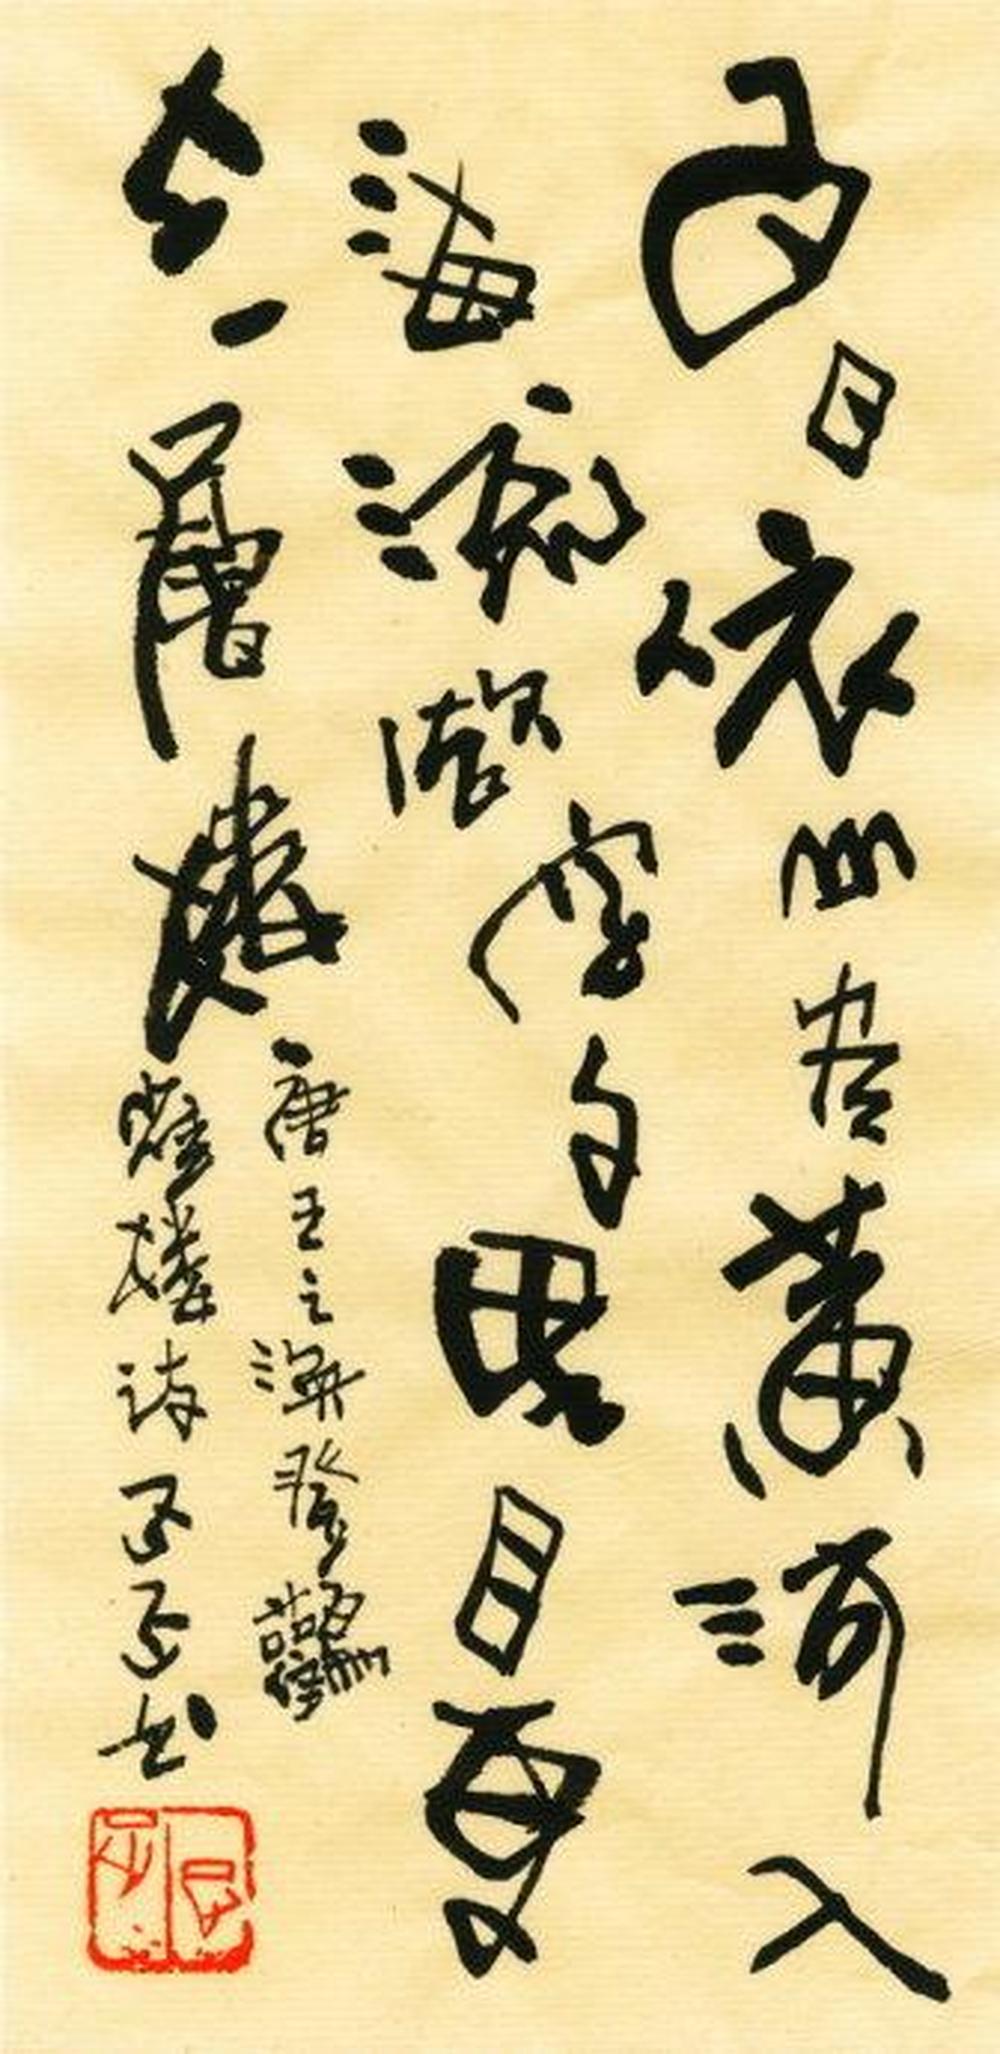 白日依山尽黄河入
海流欲穷千里目更
上一層樓
唐王之涣登鸛
雀楼诗书